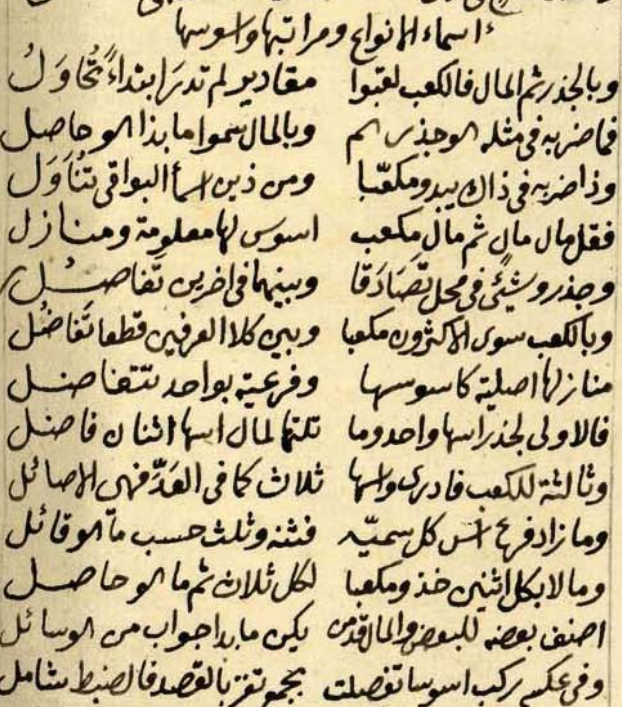 اسماء الانواع ومراتبها واسوسها
وبالجذر ثم المال فالكعب لقبوا مقادير لم تدر ابتداءً تُحاوَلُ
فما ضربه في مثله هو جذرهم وبالمال سموا ما بذا هو حاصل
وذا ضربه في ذاك يبدو مكعّبا ومن ذين اسمأ البواقي تُنَاوَل
فقل مال مالٍ ثم مال مكعب اسوس لها معلومة ومنازل
وجذر وشيئ في محل تَصَادَقا وبينهما في اخرين تَفاصُل
وبالكعب سوى الاكثرون مكعبا وبين كلا العرفين قطعا تَفاضُل
منازلها اصلية كاسوسها وفرعية بواحد تتفاضل
فالاولى لجذر اسها واحد وما تلتها لمال اسها اثنان فاضل
وثالثة للكعب فادرى واسها ثلاث كما في العَدّ فهي الاصائل
وما زاد فرع اس كل سميّه فثنه وثلث حسب ما هو قائل
ومالا بكل اثنين خذ ومكعبا لكل ثلاث ثم ما هو حاصل
اضف بعضه للبعض والمال قدمن يكن ما بدا جواب من هو سائل
وفي عكسه ركب اسوسا تفصلت بجمع تفز بالقصد فالضبط شامل